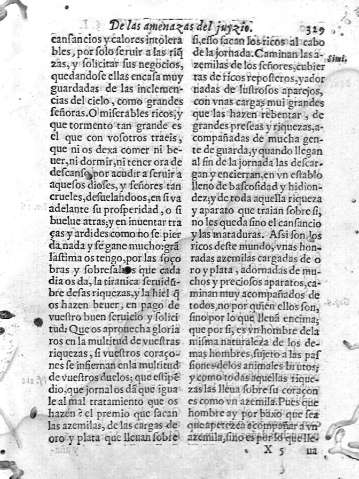 De las amenazas del juyzio. 329
cansancios y calores intolera
bles, por solo seruir a las riq̃
zas, y solicitar sus negocios,
quedandose ellas en casa muy
guardadas de las inclemen-
cias del cielo, como grandes
señoras. O miserables ricos, y
que tormento tan grande es
el que con vosotros traeis,
que ni os dexa comer ni be
uer, ni dormir, ni tener ora de
descanso, por acudir a seruir a
aquesos dioses, y señores tan
crueles, desuelandoos, en si va
adelante su prosperidad, o si
buelue atras; y en inuentar tra
ças y ardides como no se pier
da nada y se gane mucho: grã
lastima os tengo, por las soço
bras y sobresaltos que cada
dia os da, la tiranica seruidũ-
bre desas riquezas, y la hiel q̃
os hazen beuer, en pago de
vuestro buen seruicio y solici
tud. Que os aprouecha gloria
ros en la multitud de vuestras
riquezas, si vuestros coraço-
nes se infiernan en la multitud
de vuestros duelos; que estipẽ
dio, que jornal os dã que igua
le al mal tratamiento que os
hazen? el premio que sacan
las azemilas, de las cargas de
oro y plata que lleuan sobre
si, eso sacan los ricos al cabo
de la jornada. Caminan las a-
zemilas de los señores, cubier
tas de ricos reposteros, y ador
nadas de lustrosos aparejos,
con vnas cargas mui grandes
que las hazen rebentar, de
grandes preseas y riquezas, a-
compañadas de mucha gen-
te de guarda, y quando llegan
al fin de la jornada las descar-
gan y encierran, en vn establo
lleno de bascosidad y hidion-
dez; y de toda aquella riqueza
y aparato que traian sobre si,
no les queda sino el cansancio
y las mataduras. Assi son los
ricos deste mundo, vnas hon-
radas azemilas cargadas de o
ro y plata, adornadas de mu-
chos y preciosos aparatos, ca-
minan muy acompañados de
todos, no por quien ellos son,
sino por lo que lleuã encima;
que por si, es vn hombre de la
misma naturaleza de los de-
mas hombres, sujeto a las pas
siones de los animales brutos;
y como todas aquellas rique-
zas las lleua sobre su coraçon
es como vn azemila. Pues que
hombre ay por baxo que sea
que aperezca acompañar a vn
azemila, sino es por lo que lle-
Simi.
X 5 ua